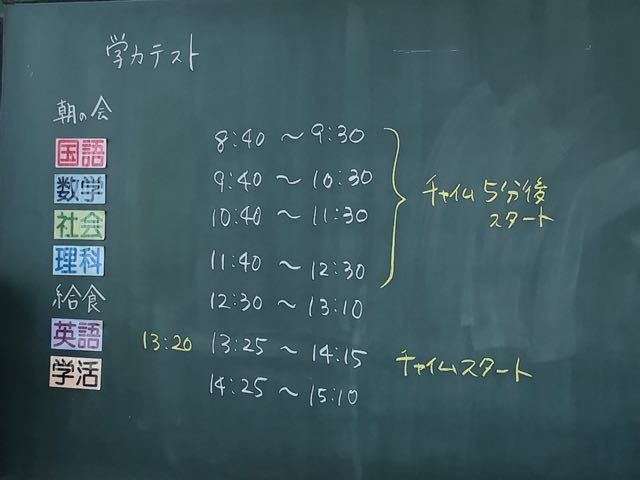 学力テスト
朝の会
国語 8:40 〜 9:30
数学 9:40 〜 10:30
社会 10:40 〜 11:30
理科 11:40 〜 12:30
チャイム 5分後
スタート
給食 12:30 〜 13:10
英語 13:20 13:25 〜 14:15 チャイムスタート
学活 14:25 〜 15:10